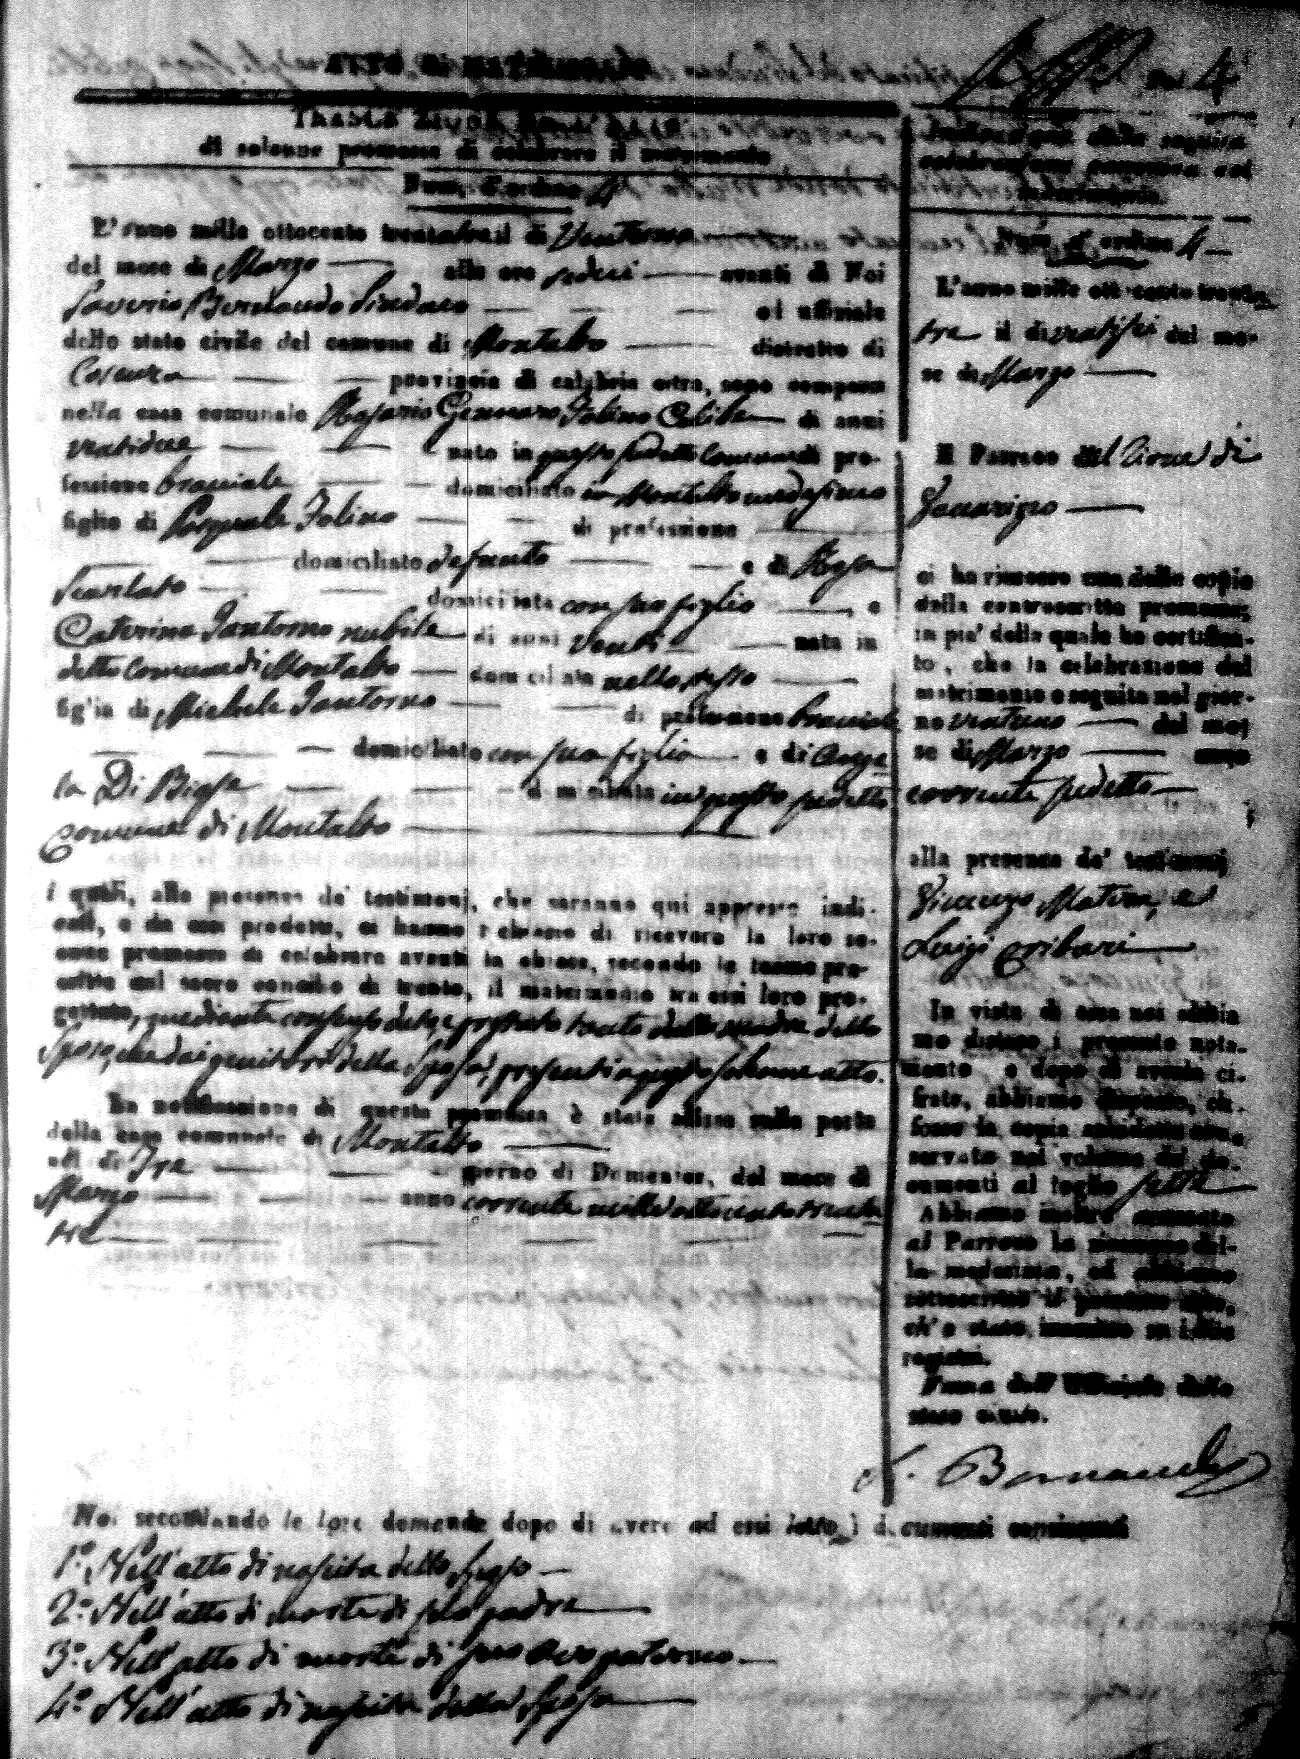 ATTO DI MATRIMONIO
di solenne promessa di celebrare il matrimonio
Num. d'ordine 4
L'anno mille ottocento trentatre il di Ventuno
del mese di Marzo alle ore sedici avanti di Noi
Saverio Bernaudo Sindaco ed uffiziale
dello stato civile del comune di Montalto distretto di
Cosenza provincia di calabria citra, sono comparsi
nella casa comunale Rosario Gennaro Folino Celibe di anni
ventidue nato in questo sudetto Comune di pro-
fessione bracciale domiciliato in Montalto medesimo
figlio di Pasquale Folino di professione
domiciliato defunto e di Rosa
Scarlato domiciliata con suo figlio, e
Caterina Santorno nubile di anni venti nata in
detto Comune di Montalto domiciliata nello stesso
figlia di Michele Santorno di professione bracciale
domiciliato con sua figlia e di Ange
la Di Biase domiciliata in questo sudetto
Comune di Montalto
i quali, alla presenza de' testimonj, che saranno qui appresso indi-
cati, e da essi prodotti, ci hanno richiesto di ricevere la loro so-
lenne promessa di celebrare avanti la chiesa, secondo le forme pre-
scritte dal sacro concilio di trento, il matrimonio tra essi loro pro-
gettato, mediante consenso dato, e prestato tanto dalla madre dello
Sposo, che dai genitori della Sposa, presenti a questo solenne atto.
La notificazione di questa promessa è stata affissa sulla porta
della casa comunale di Montalto
nel di Tre giorno di Domenica, del mese di
Marzo anno corrente mille ottocento trenta
tre
Noi secondando le loro domande dopo di avere ad essi letto i documenti consistenti
1.º Nell'atto di nascita dello sposo
2.º Nell'atto di morte di suo padre
3.º Nell'atto di morte di suo avo paterno
4.º Nell'atto di nascita della Sposa
4
Indicazione della seguita
celebrazione canonica del
matrimonio.
Num. d'ordine 4
L'anno mille ottocento trenta
tre il di ventisei del me-
se di Marzo
Il Parroco del Rione di
ci ha rimesso una delle copie
della controscritta promessa;
in piè della quale ha certifica-
to, che la celebrazione del
matrimonio e seguita nel gior-
no ventuno del me-
se di Marzo anno
corrente sudetto
alla presenza de' testimonj
Vincenzo Matera, e
Luigi Cribari
In vista di essa noi abbia
mo disteso il presente nota-
mento e dopo di averla ci-
frata, abbiamo disposto, ch'
fosse la copia anzidetta con-
servata nel volume dei do-
cumenti al foglio sette
Abbiamo inoltre accusato
al Parroco la ricezione del-
la medesima, ed abbiamo
sottoscritto il presente atto,
ch'è stato inscritto su i due
registri.
Firma dell'Uffiziale dello
stato civile.
S. Bernaudo